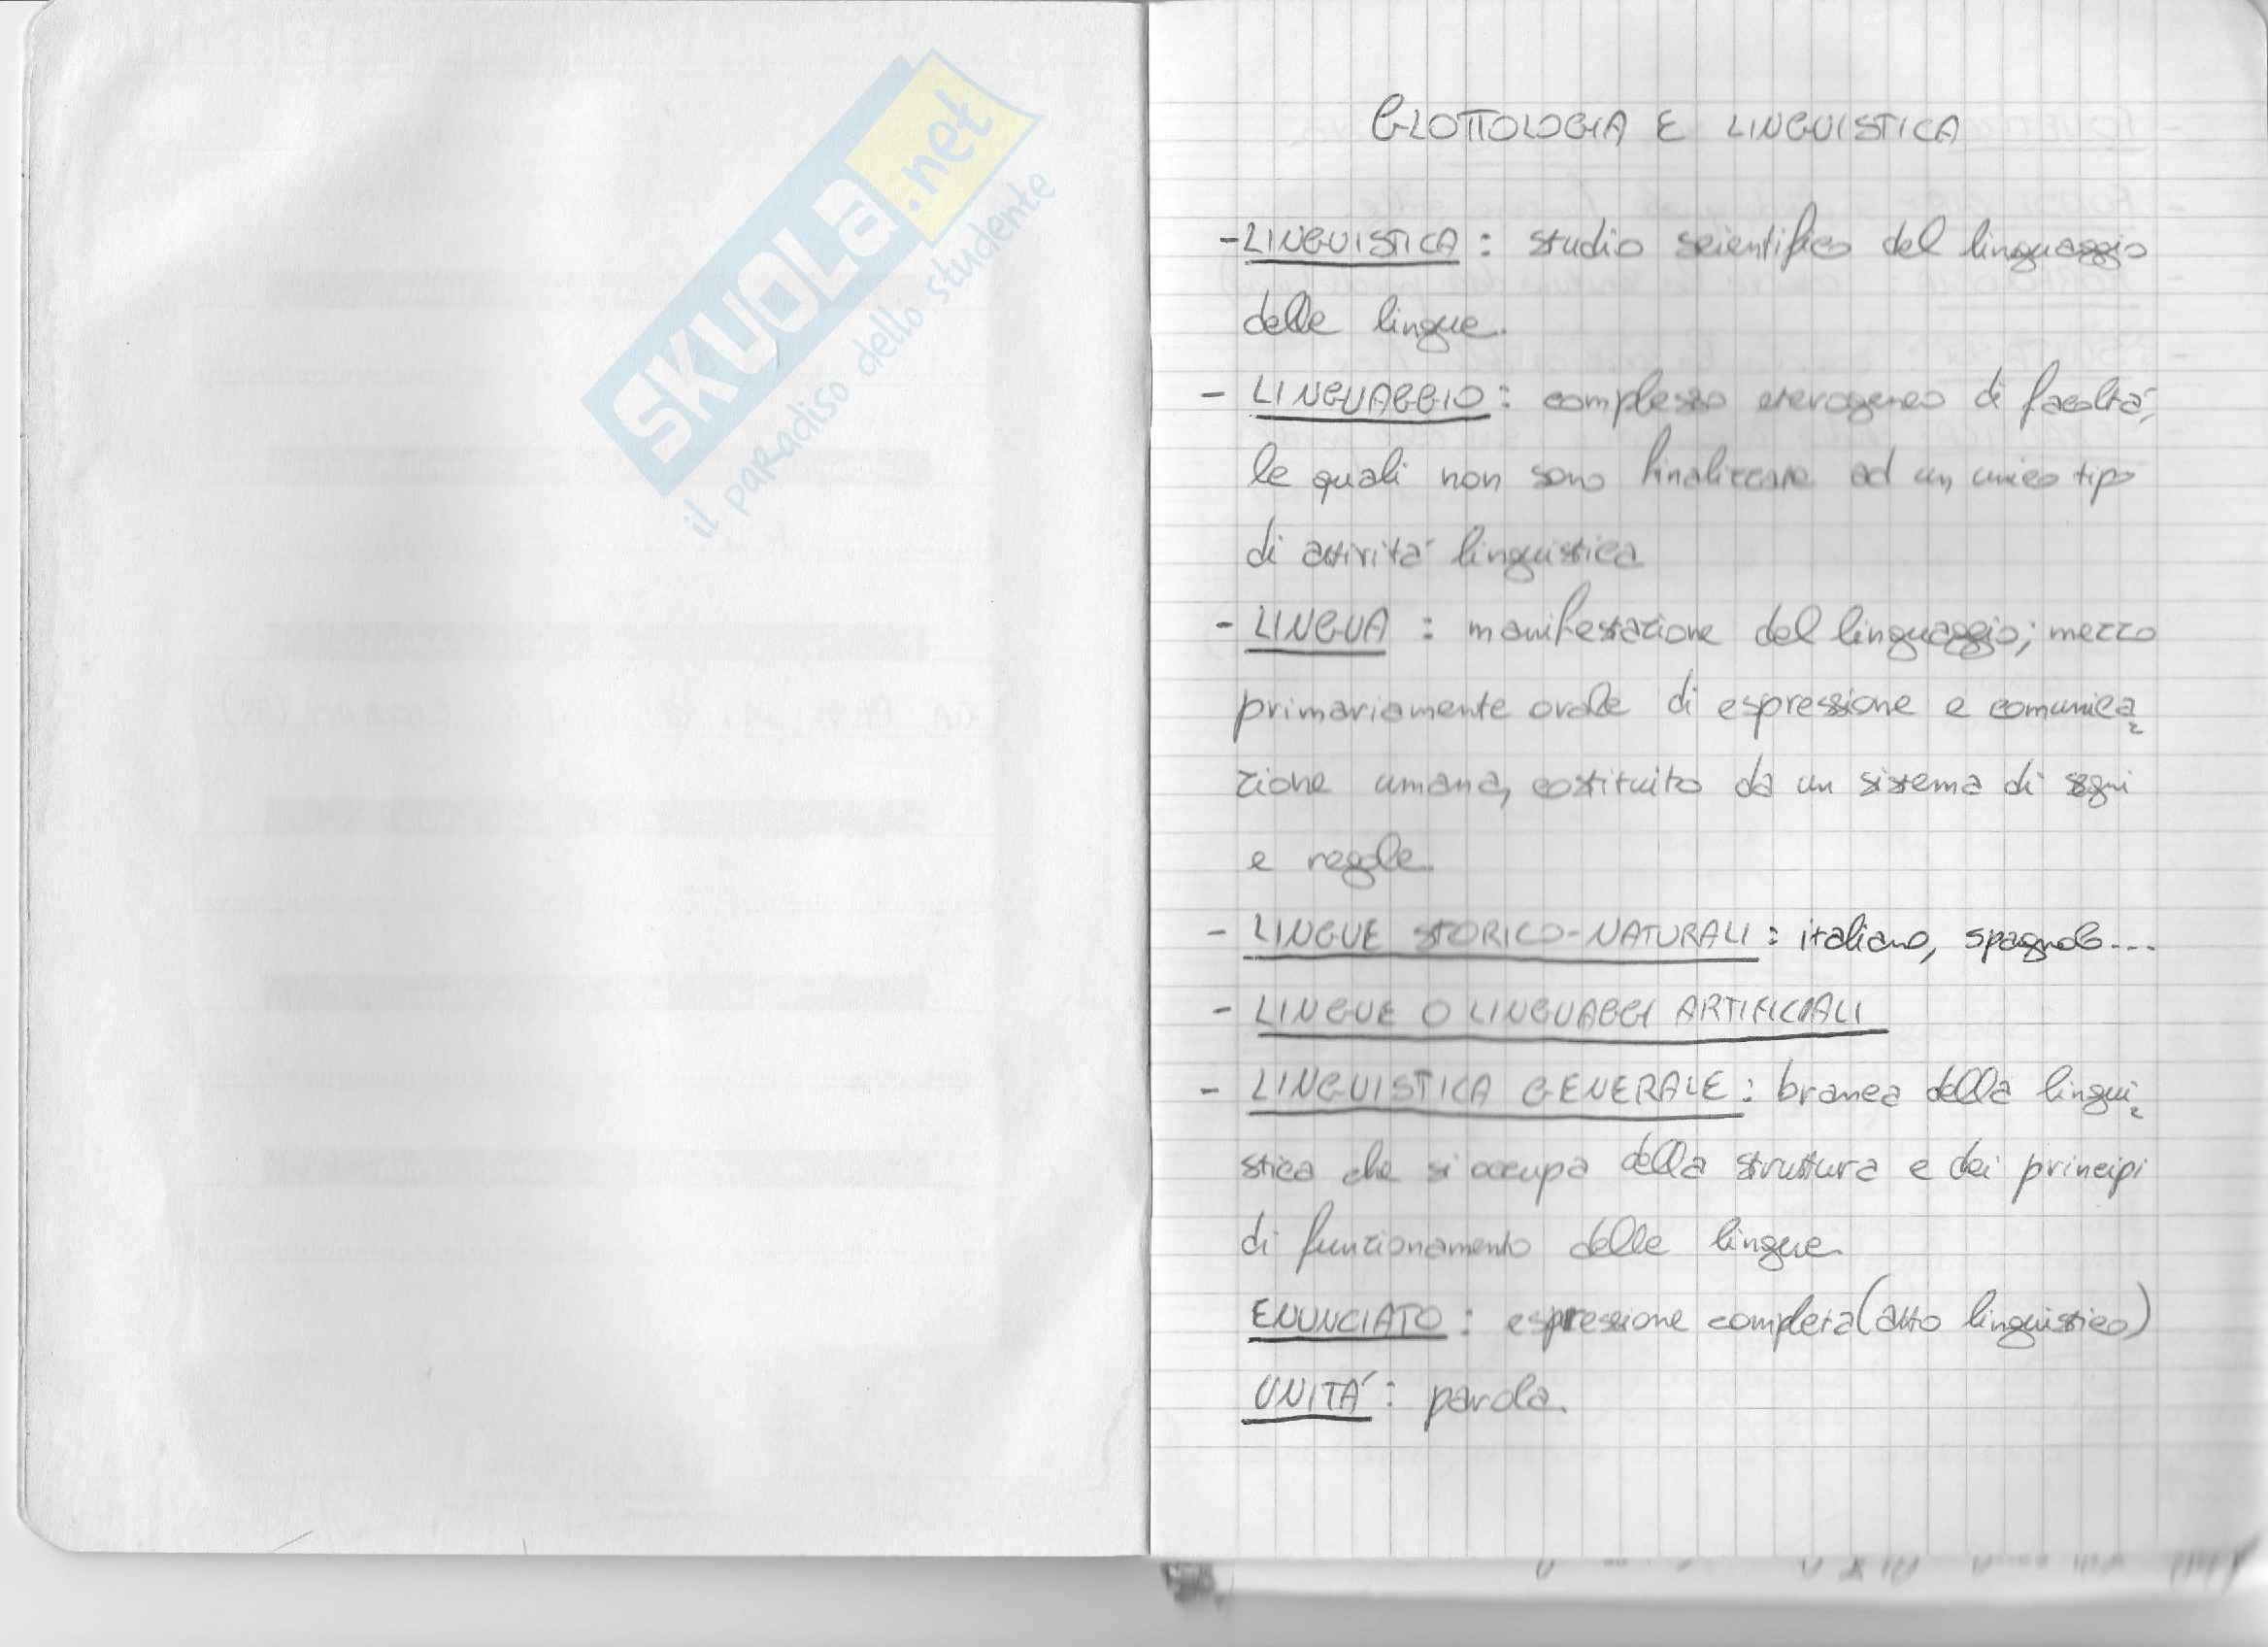 SKUOLA.net
il paradiso dello studente
GLOTTOLOGIA E LINGUISTICA
- LINGUISTICA : studio scientifico del linguaggio
delle lingue.
- LINGUAGGIO : complesso eterogeneo di facoltà,
le quali non sono finalizzate ad un unico tipo
di attività linguistica
- LINGUA : manifestazione del linguaggio; mezzo
primariamente orale di espressione e comunica=
zione umana, costituito da un sistema di segni
e regole.
- LINGUE STORICO-NATURALI : italiano, spagnolo...
- LINGUE O LINGUAGGI ARTIFICIALI
- LINGUISTICA GENERALE : branca della lingui=
stica che si occupa della struttura e dei principi
di funzionamento delle lingue.
ENUNCIATO : espressione completa (atto linguistico)
UNITÀ : parola.